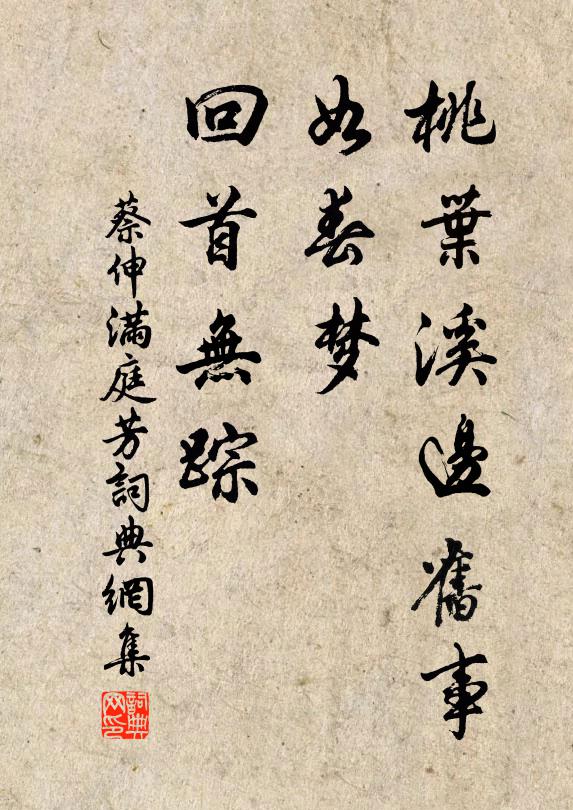 桃葉溪邊舊事
如春梦
回首無踪
蔡伸滿庭芳詞典網集
詞典网印